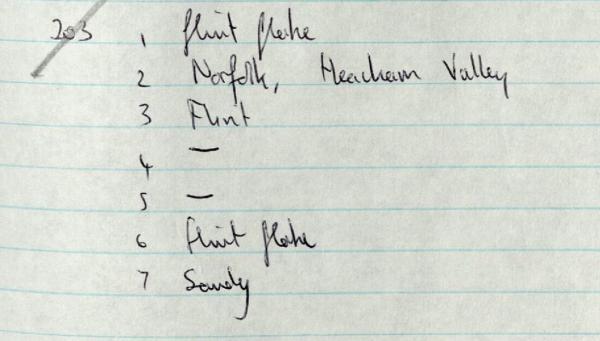 203 1 flint flake
2 Norfolk, Heacham Valley
3 Flint
4 —
5 —
6 flint flake
7 Sandy